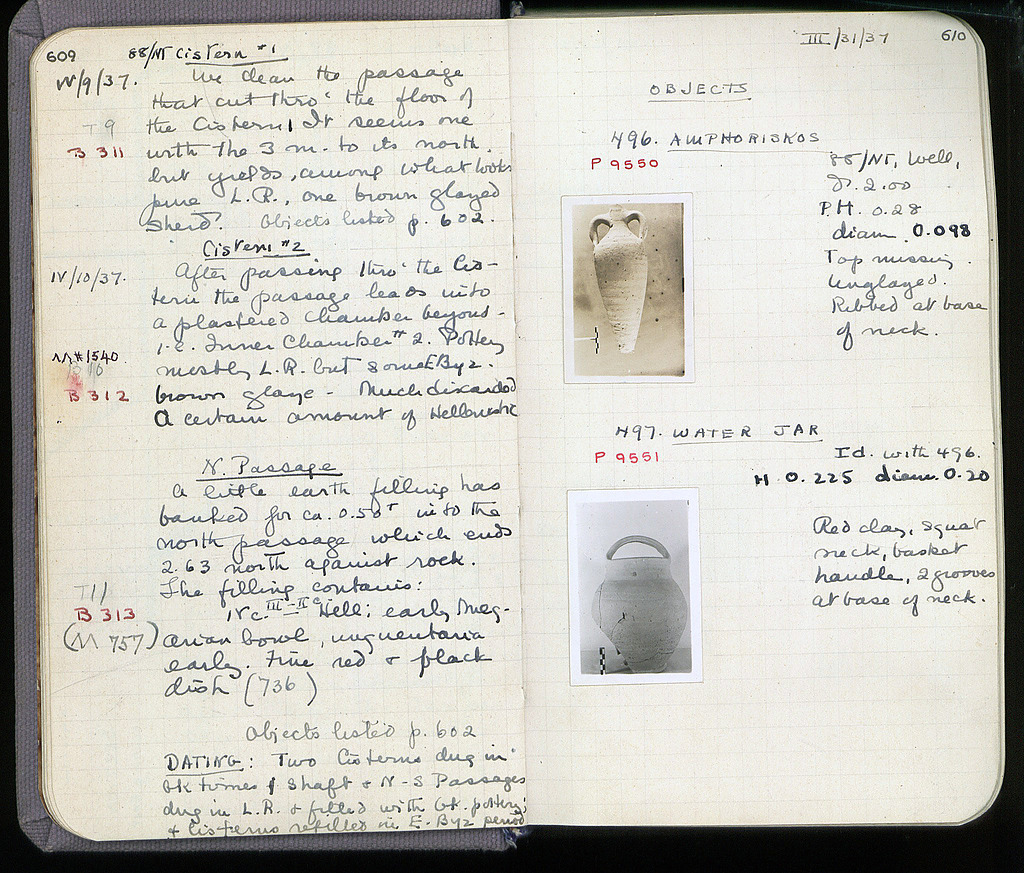 609 88/NT Cistern #1
IV/9/37. We clean the passage
that cut thro' the floor of
T 9 the Cistern. It seems one
B 311 with the 3 m. to its north.
but yields, among what looks
pure L.R., one brown glazed
sherd. Objects listed p. 602.
Cistern #2
IV/10/37. After passing thro' the Cis-
tern the passage leads into
a plastered chamber beyond -
i.e. Inner Chamber #2. Pottery
ΛΛ#1540
mostly L.R. but some E. Byz.
B 312 brown glaze - Much discarded
A certain amount of Hellenistic
N. Passage
A little earth filling has
banked for ca. 0.50+ into the
north passage which ends
2.63 north against rock.
T11 The filling contains:
B 313 IV c. III-II c Hell; early Meg-
(ΛΛ 757) arian bowl, unguentaria
early. Fine red & black
dish (736)
Objects listed p. 602
DATING: Two Cisterns dug in
Gk times; Shaft & N-S Passages
dug in L.R. & filled with Gk. pottery;
& Cisterns refilled in E. Byz period
III/31/37 610
OBJECTS
496. AMPHORISKOS
P 9550
88/NT, Well,
D. 2.00
P.H. 0.28
diam. 0.098
Top missing.
Unglazed.
Ribbed at base
of neck.
497. WATER JAR
P 9551
Id. with 496.
H. 0.225 diam. 0.20
Red clay, squat
neck, basket
handle, 2 grooves
at base of neck.